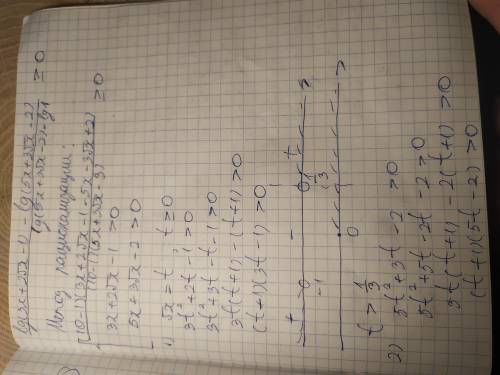 (lg(3x+2√x-1) - lg(5x+3√x-2)) / (lg(5x+3√x-2) - lg1) ≥ 0
Метод рационализации:
((10-1)(3x+2√x-1-5x-3√x+2)) / ((10-1)(5x+3√x-3)) ≥ 0
3x+2√x-1 > 0
5x+3√x-2 > 0
1) √x = t t ≥ 0
3t²+2t-1 > 0
3t²+3t-t-1 > 0
3t(t+1)-(t+1) > 0
(t+1)(3t-1) > 0
+ - +
-1 1/3
0
t > 1/3
2) 5t²+3t-2 > 0
5t²+5t-2t-2 > 0
5t(t+1) - 2(t+1) > 0
(t+1)(5t-2) > 0